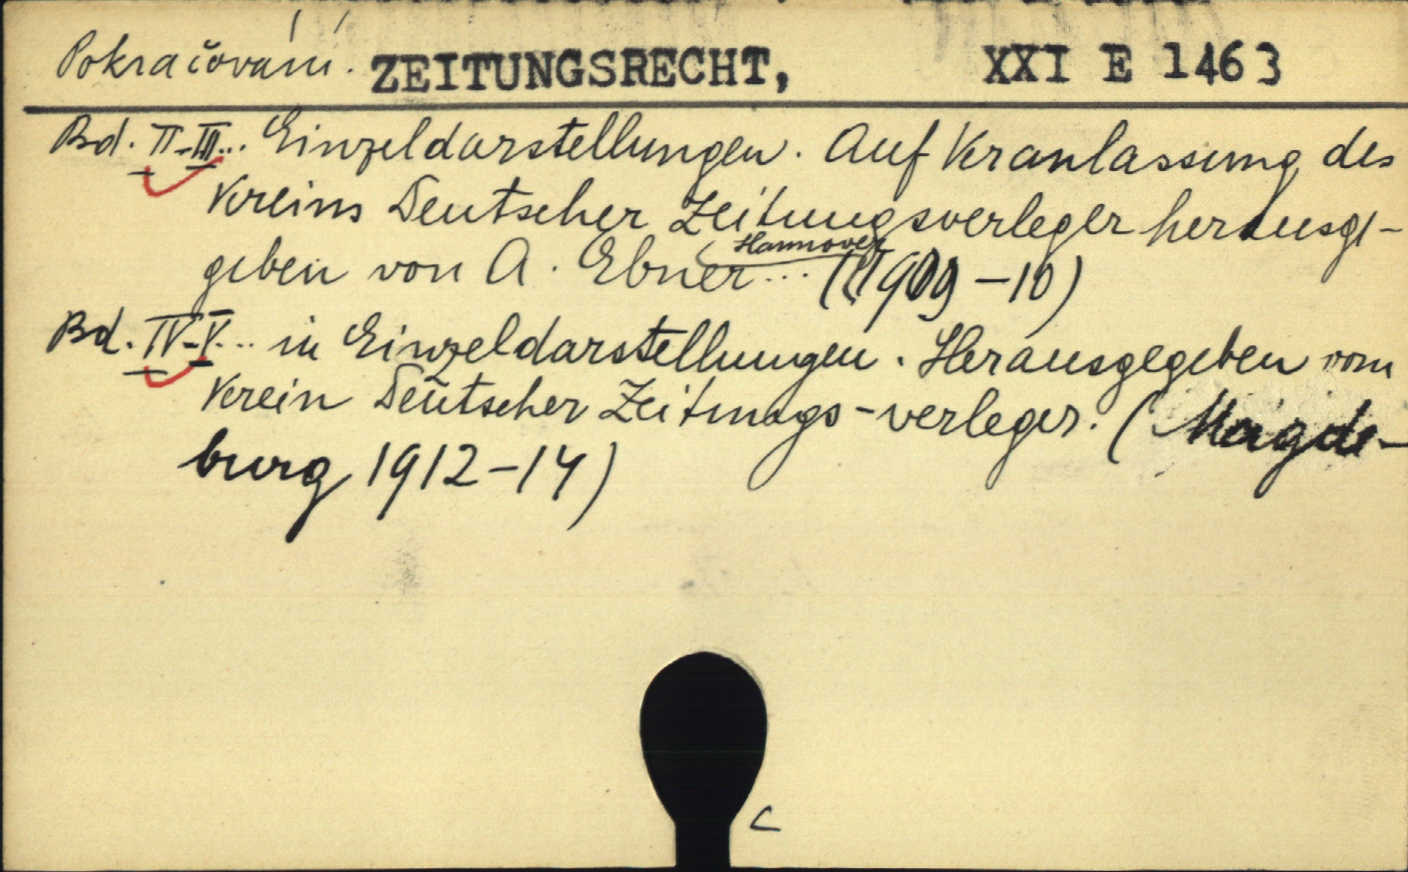 Pokračování. ZEITUNGSRECHT, XXI E 1463
Bd. II-III... Einzeldarstellungen. Auf Veranlassung des
Vereins Deutscher Zeitungsverleger herausge-
geben von A. Ebner... (Hannover 1909-10)
Bd. IV-V... in Einzeldarstellungen. Herausgegeben vom
Verein Deutscher Zeitungs-verleger. (Magde-
burg 1912-14)
c